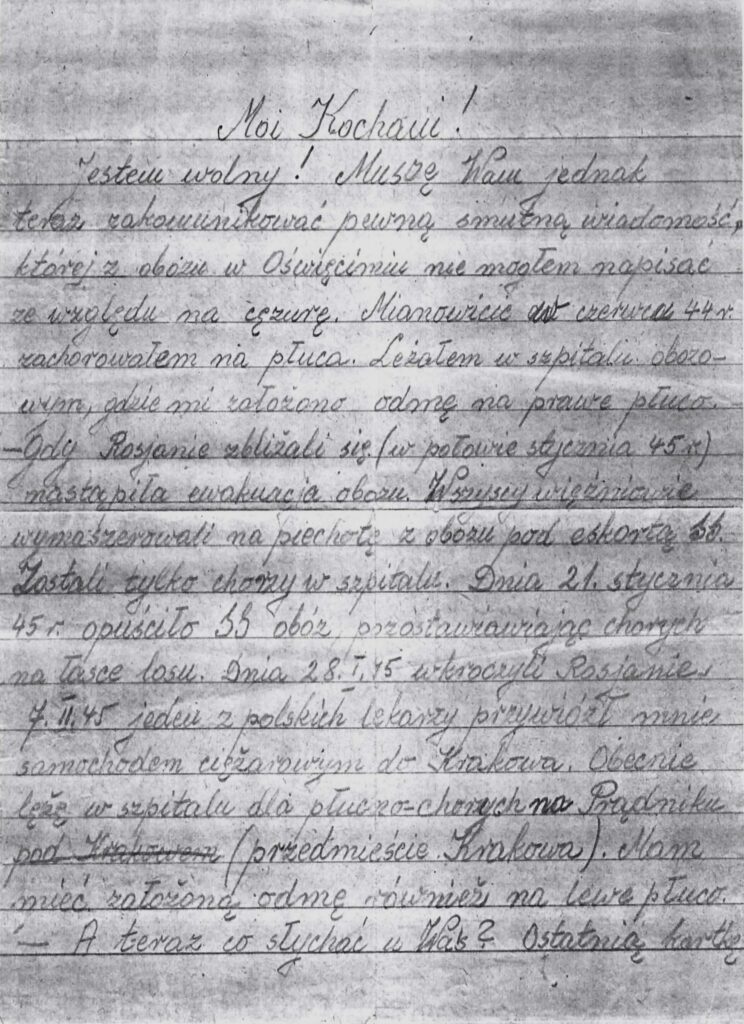 Moi Kochani!
Jestem wolny! Muszę Wam jednak
teraz zakomunikować pewną smutną wiadomość,
której z obozu w Oświęcimiu nie mogłem napisać
ze względu na cęzurę. Mianowicie w czerwcu 44 r.
zachorowałem na płuca. Leżałem w szpitalu obozo-
wym, gdzie mi założono odmę na prawe płuco.
– Gdy Rosjanie zbliżali się (w połowie stycznia 45 r.)
nastąpiła ewakuacja obozu. Wszyscy więźniowie
wymaszerowali na piechotę z obozu pod eskortą SS.
Zostali tylko chorzy w szpitalu. Dnia 21. stycznia
45 r. opuściło SS obóz, chorych
na łasce losu. Dnia 28.I.45 wkroczyli Rosjanie.
7.II.45 jeden z polskich lekarzy przywiózł mnie
samochodem ciężarowym do Krakowa. Obecnie
lężę w szpitalu dla płucno-chorych na Prądniku
pod Krakowem (przedmieście Krakowa). Mam
mieć założoną odmę również na lewe płuco.
– A teraz co słychać u Was? Ostatnią kartkę